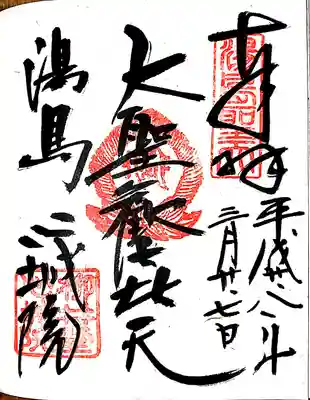 奉拝
平成廿八年
三月廿七日
大聖歓喜天
湯島
心城院